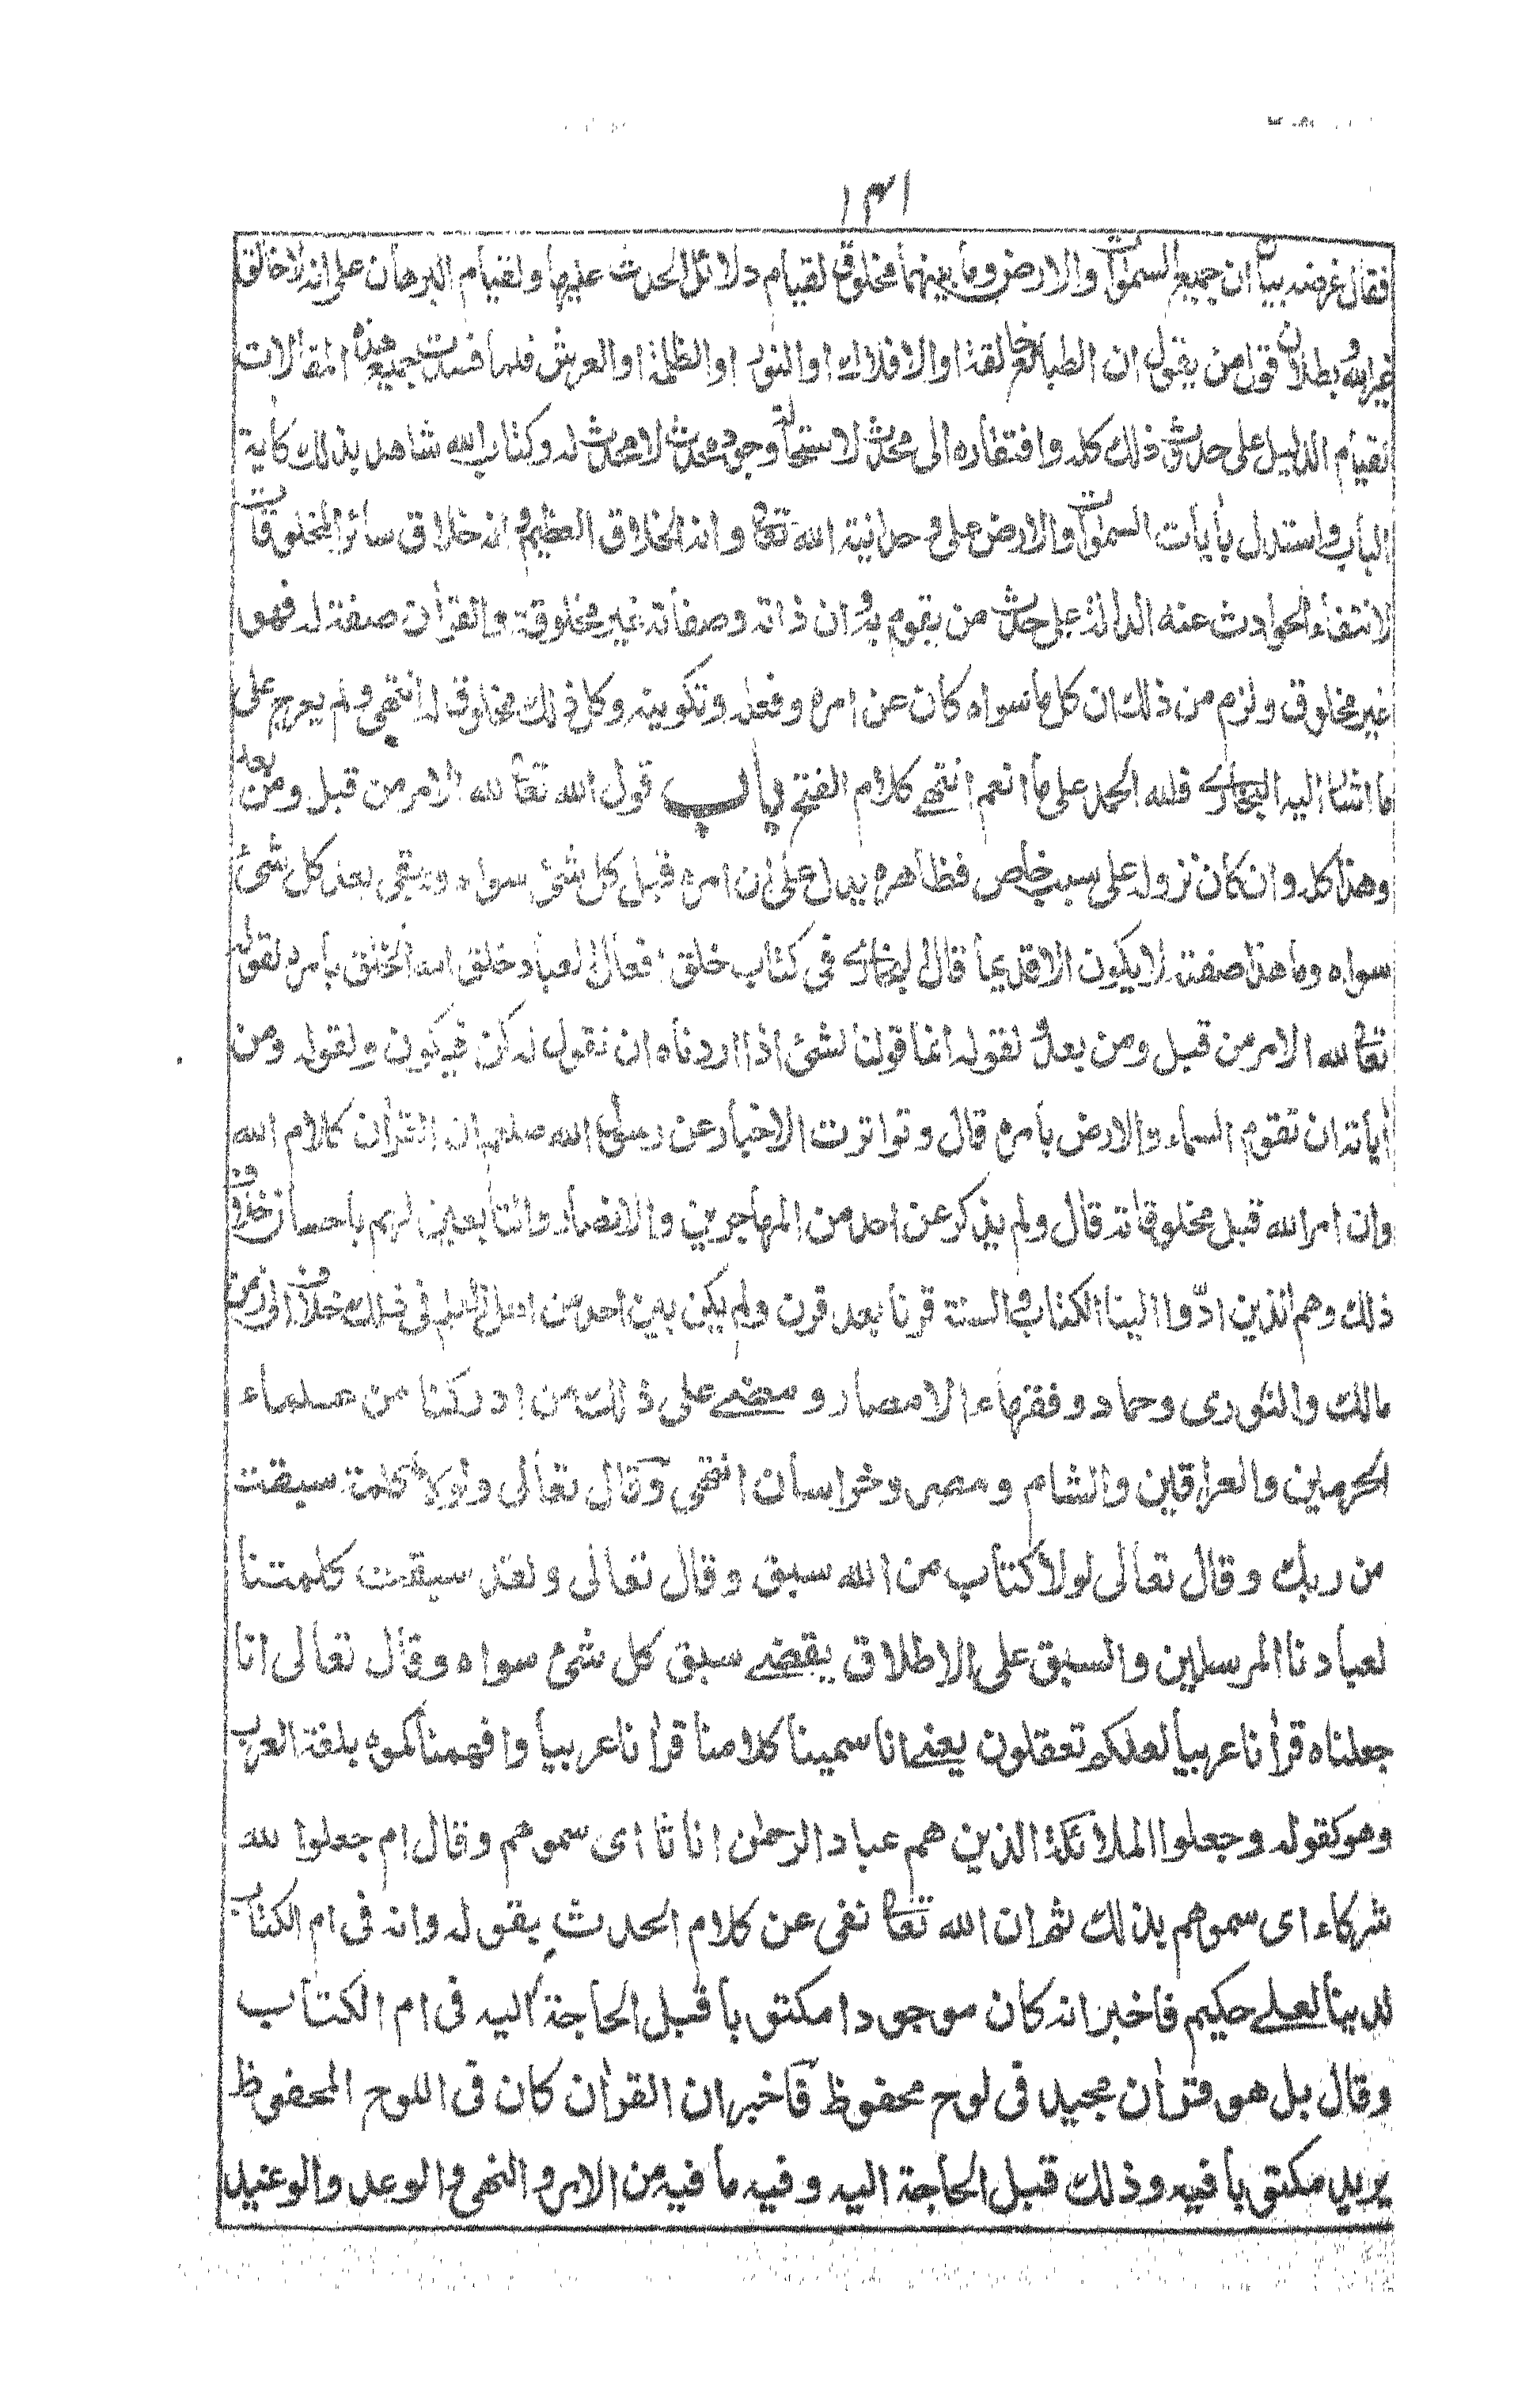 ١٣١
فقال غرضه بيان ان جميع السموات والارض وما بينهما مخلوق لقيام دلائل الحدث عليها ولقيام البرهان على انه لا خالق
غير الله وبطلان قول من يقول ان الطبائع خالقة او الافلاك او النور او الظلمة او العرش فلما فسدت جميع هذه المقالات
لقيام الدليل على حدث ذلك كله وافتقاره الى محدث لاستحالة وجود محدث لا محدث له وكتاب الله شاهد بذلك كأية
الباب واستدل بأيات السموات والارض على وحدانية الله تعا وانه الخلاق العظيم وانه خلاق سائر المخلوقات
لانتفاء الحوادث عنه الدالة على حدث من يقوم به وان ذاته وصفاته غير مخلوقة والقرأن صفة له فهو
غير مخلوق ولزم من ذلك ان كل ما سواه كان عن امره وفعله وتكوينه وكل ذلك مخلوق له انتهى ولم يعرج على
ما اشار اليه البخارى فلله الحمد على ما انعم انتهى كلام الفتح باب قول الله تعا لله الامر من قبل ومن بعد
وهذا كله وان كان نزوله على سبب خاص فظاهره يدل على ان امره قبل كل شئ سواه ويبقى بعد كل شئ
سواه وما هذا صفته لا يكون الا قديما قال البخارى فى كتاب خلق افعال العباد خلق الله الخلق بامره لقوله
تعا لله الامر من قبل ومن بعد ولقوله انما قولنا لشئ اذا اردناه ان نقول له كن فيكون ولقوله ومن
أياته ان تقوم السماء والارض بامره قال وتواترت الاخبار عن رسول الله صلعم ان القرأن كلام الله
وان امر الله قبل مخلوقاته قال ولم يذكر عن احد من المهاجرين والانصار والتابعين لهم باحسان خلاف
ذلك وهم الذين ادّوا الينا الكتاب والسنة قرنا بعد قرن ولم يكن بين احد من اهل العلم فى ذلك خلاف الى زمن
مالك والثورى وحماد وفقهاء الامصار ومضى على ذلك من ادركنا من علماء
الحرمين والعراقين والشام ومصر وخراسان انتهى وقال تعالى ولولا كلمة سبقت
من ربك وقال تعالى لولا كتاب من الله سبق وقال تعالى ولقد سبقت كلمتنا
لعبادنا المرسلين والسبق على الاطلاق يقضى سبق كل شئ سواه وقال تعالى انا
جعلناه قرأنا عربيا لعلكم تعقلون يعنى انا سمينا كلامنا قرأنا عربيا وافهمناكموه بلغة العرب
وهو كقوله وجعلوا الملائكة الذين هم عباد الرحمن اناثا اى سموهم وقال ام جعلوا لله
شركاء اى سموهم بذلك ثم ان الله تعا نفى عن كلام الحدث بقوله وانه فى ام الكتاب
لدينا لعلى حكيم فاخبر انه كان موجودا مكتوبا قبل الحاجة اليه فى ام الكتاب
وقال بل هو قرأن مجيد فى لوح محفوظ فاخبر ان القرأن كان فى اللوح المحفوظ
يريد مكتوبا فيه وذلك قبل الحاجة اليه وفيه ما فيه من الامر والنهى والوعد والوعيد